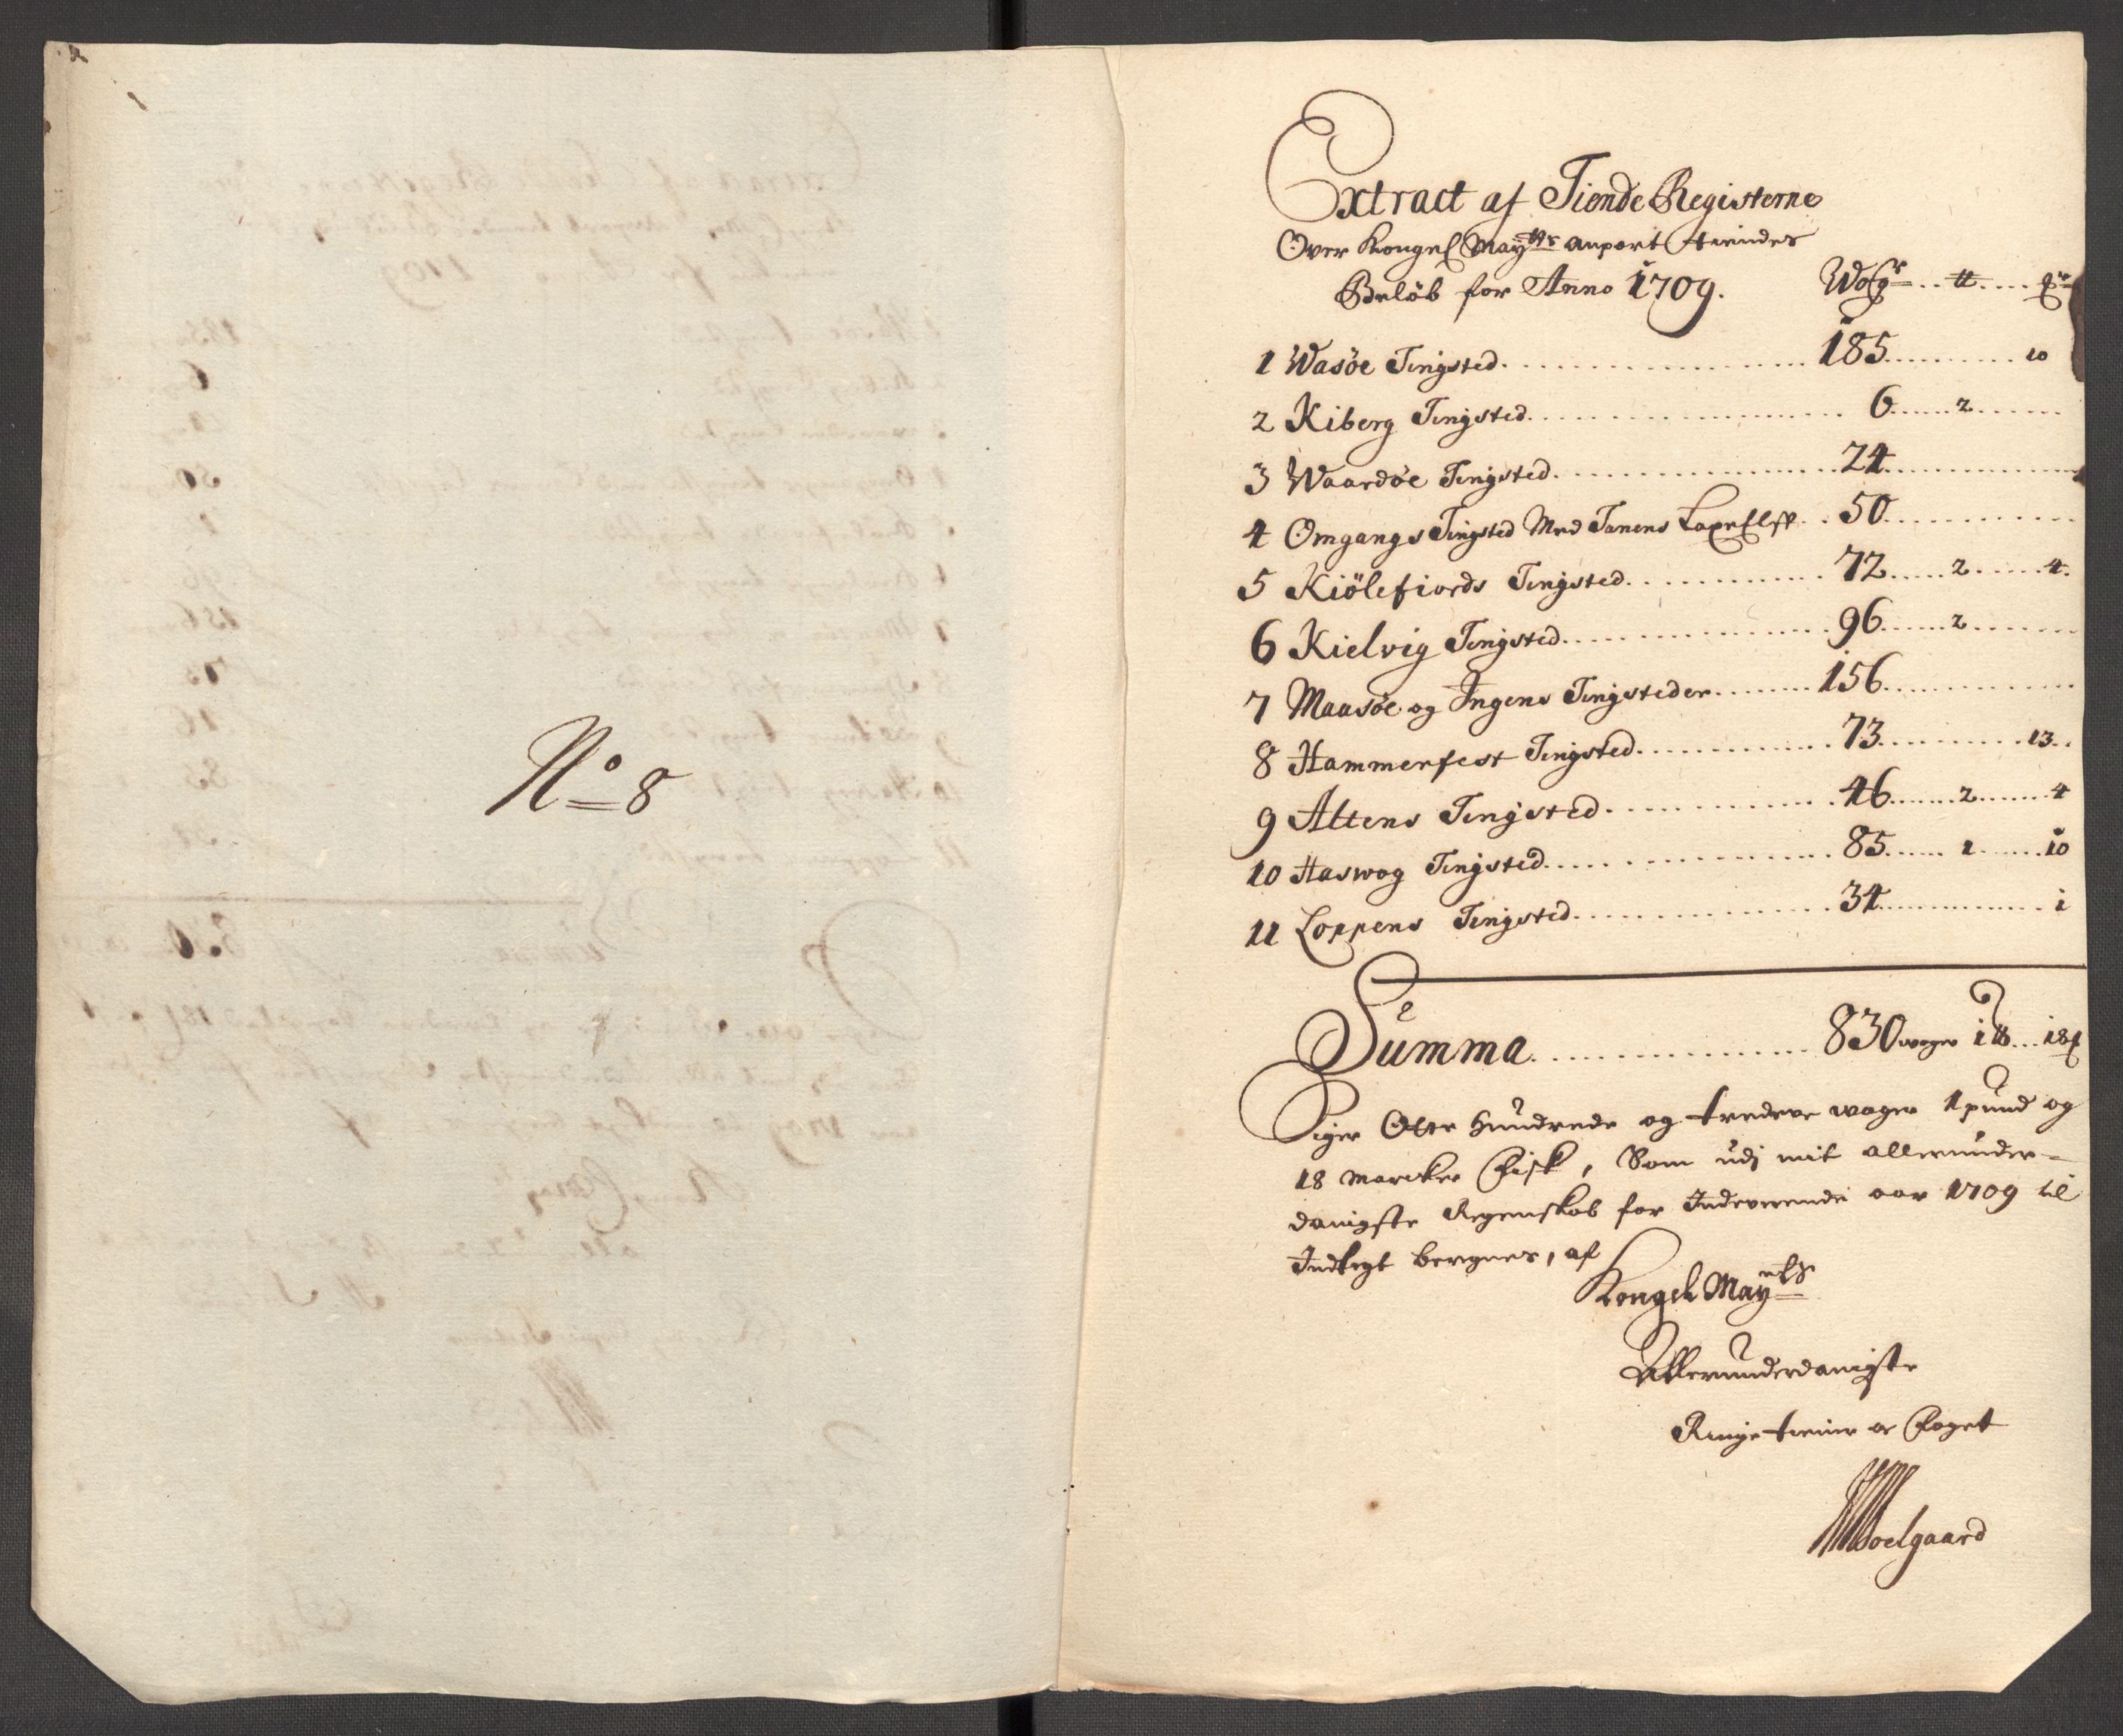 No 8
Extract af Tiende Registerne
Over Kongel May:tts anpart tiendes
Beløb for Anno 1709. Wog:r .. ℔ .... 
1 Wasöe Tingsted. 185. 10
2 Kiberg Tingsted. 6. 2
3 Waardöe Tingsted. 24.
4 Omgangs Tingsted Med Tanens 50.
5 Kiölefiords Tingsted. 72. 2. 4.
6 Kielvig Tingsted. 96. 2
7 Maasöe og Ingens Tingsteder. 156.
8 Hammerfest Tingsted. 73. 13.
9 Altens Tingsted. 46. 2. 4
10 Haswog Tingsted. 85. 1. 10
11 Loppens Tingsted. 34. 1
Summa. 830 woger 1 ℔ .. 18
Siger Otte Hundrede og tredeve woger 1 pund og
18 Marcker Fisk, Som udj mit allerunder=
danigste Regenskab for Indeverende aar 1709 til
Indtegt beregnes, af
Kongel May:tts
Allerunderdanigste
Ringe tienner og Foget
Soelgaard